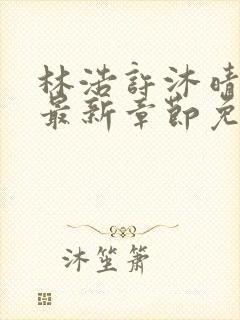 林浩许沐晴
最新章节免
沐笙箫